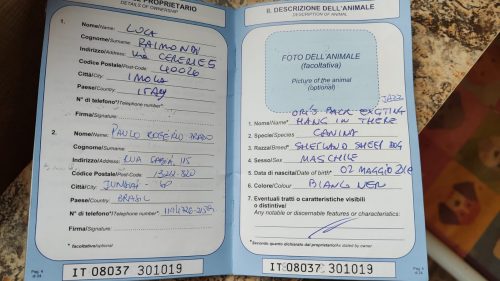 PROPRIETARIO
DETAILS OF OWNERSHIP
1.
Nome/Name: LUCA
Cognome/Surname: RAIMONDI
Indirizzo/Address: VIA CERERE 5
Codice Postale/Post-Code: 40026
Città/City: IMOLA
Paese/Country: ITALY
N° di telefono*/Telephone number*:
Firma/Signature:
2.
Nome/Name: PAULO ROGERIO
Cognome/Surname:
Indirizzo/Address: RUA 115
Codice Postale/Post-Code:
Città/City: SP
Paese/Country: BRASIL
N° di telefono*/Telephone number*:
Firma/Signature:
* facoltativo/optional
Pag. 4
di 24
IT 08037 301019
II. DESCRIZIONE DELL'ANIMALE
DESCRIPTION OF ANIMAL
FOTO DELL'ANIMALE
(facoltativa)
Picture of the animal
(optional)
JAZZ
1. Nome/Name* PACK EXCITING
HANG IN THERE
2. Specie/Species CANINA
3. Razza/Breed* SHETLAND SHEEP DOG
4. Sesso/Sex MASCHILE
5. Data di nascita/Date of birth* 02 MAGGIO
6. Colore/Colour BIANCO NERO
7. Eventuali tratti o caratteristiche visibili
o distintivi/
Any notable or discernable features or characteristics:
* Secondo quanto dichiarato dal proprietario/As stated by owner
Pag. 5
di 24
IT 08037 301019